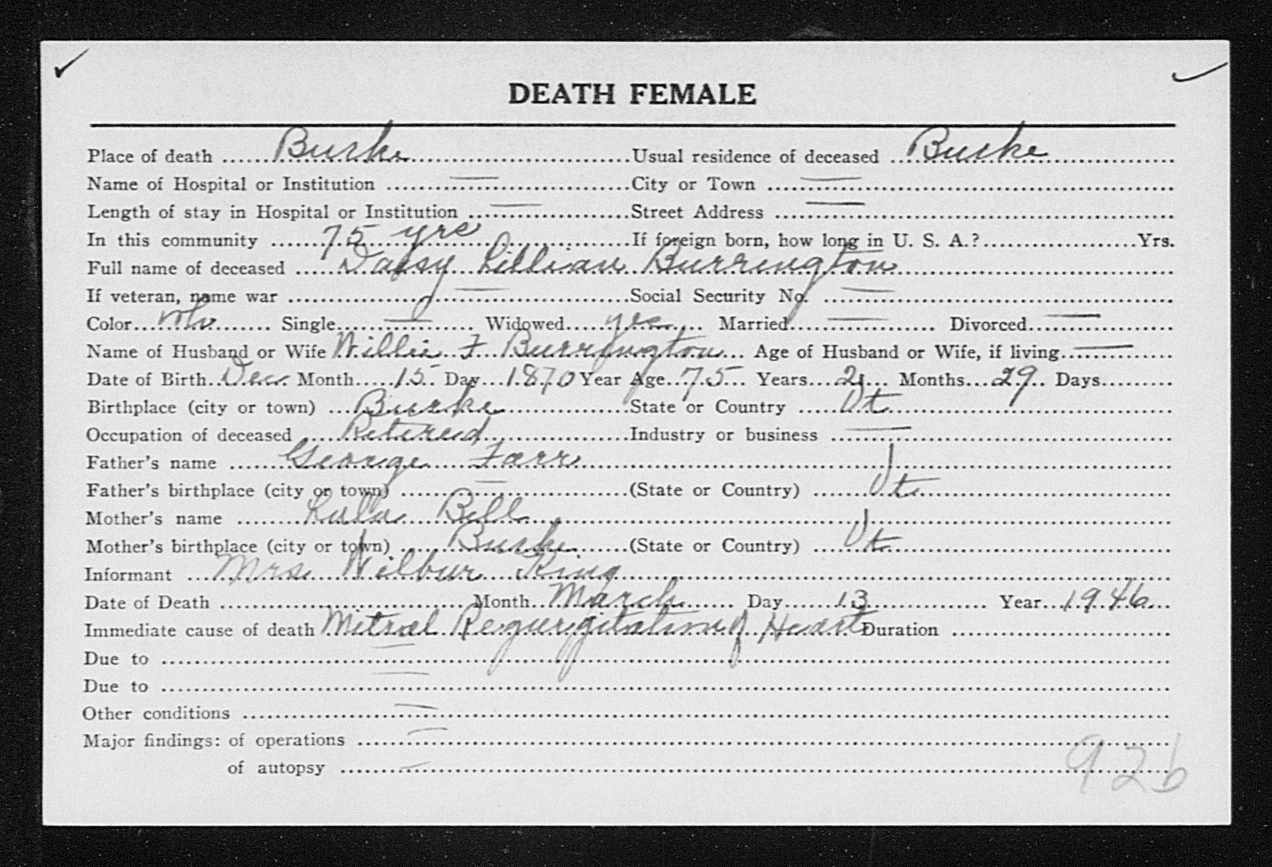 DEATH FEMALE
Place of death ......Burke......Usual residence of deceased ...Burke......
Name of Hospital or Institution ......—......City or Town ......—......
Length of stay in Hospital or Institution ......—......Street Address ......—......
In this community ......75 yrs......If foreign born, how long in U. S. A.?......Yrs.
Full name of deceased ......Daisy Lillian Burrington......
If veteran, name war ......—......Social Security No. ......—......
Color...Wh...... Single......—...... Widowed......yes...... Married......—...... Divorced......—......
Name of Husband or Wife Willie F. Burrington... Age of Husband or Wife, if living......—......
Date of Birth..Dec. Month......15 Day...1870 Year Age...75... Years...2... Months...29.. Days......
Birthplace (city or town) ...Burke......State or Country ......Vt......
Occupation of deceased ...Retired......Industry or business ......—......
Father's name ......George Farr......
Father's birthplace (city or town) ......—......(State or Country) ......Vt......
Mother's name ......Lulla Bell......
Mother's birthplace (city or town) ......Burke......(State or Country) ......Vt......
Informant ...Mrs. Wilbur King......
Date of Death ......Month...March...... Day......13...... Year...1946...
Immediate cause of death Mitral Regurgitation of Heart Duration ......
Due to ......—......
Due to ......—......
Other conditions ......—......
Major findings: of operations ......—......
of autopsy ......—......
92b